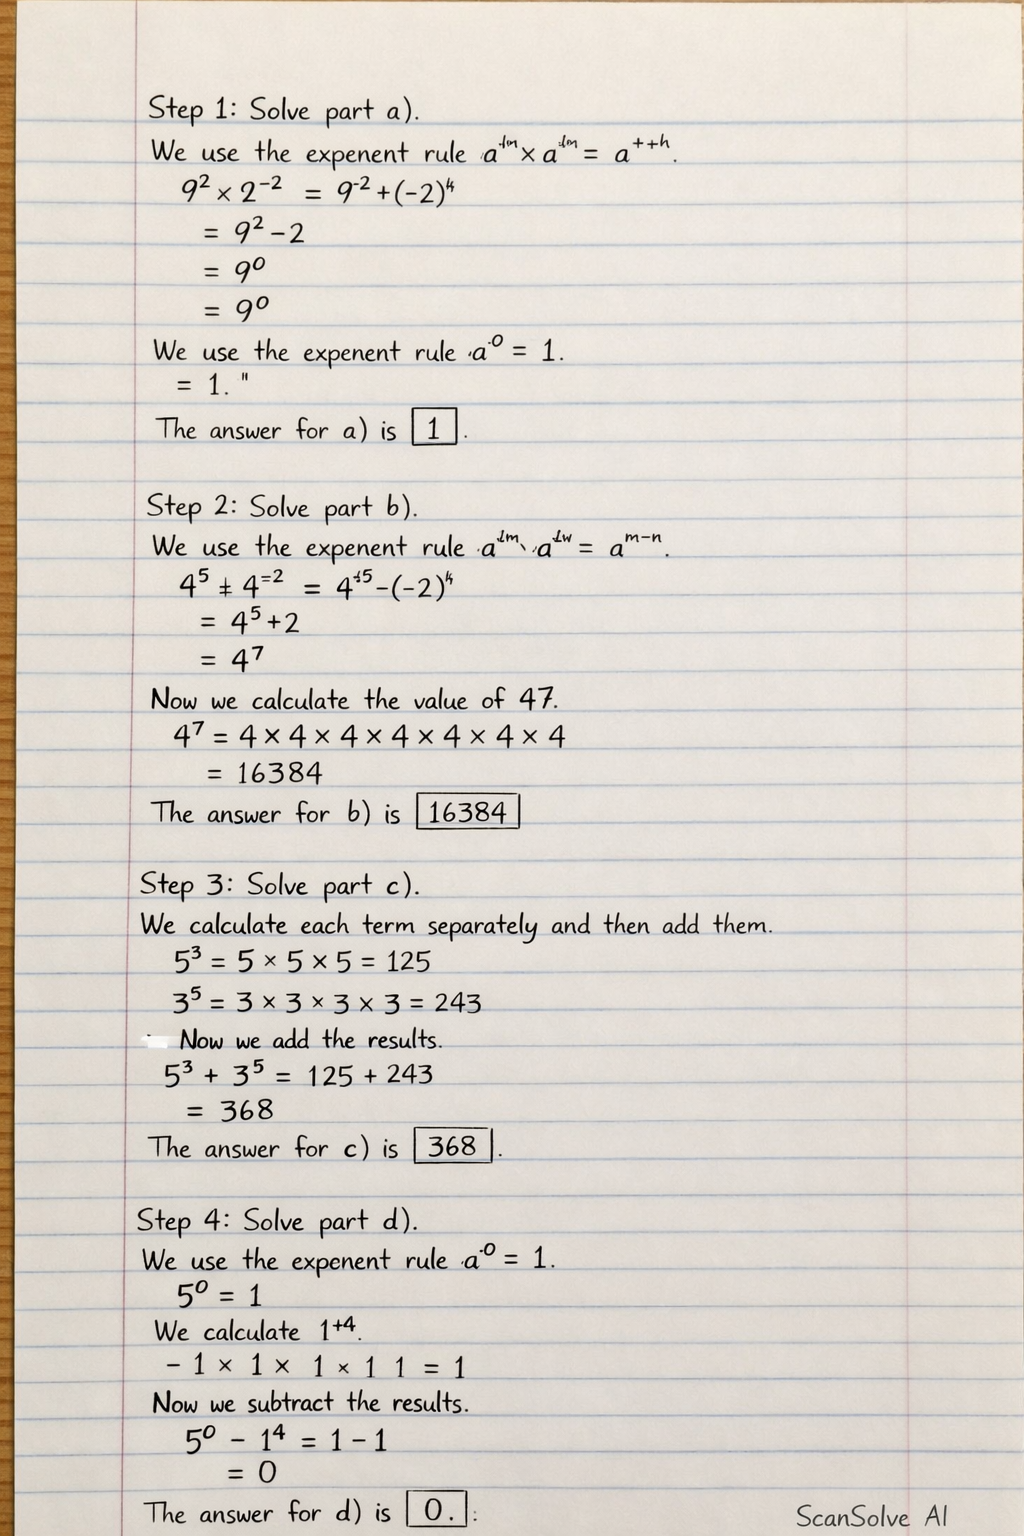 Step 1: Solve part a).
We use the expenent rule a^tm × a^tm = a^++h.
9² × 2⁻² = 9⁻² + (−2)⁴
= 9² − 2
= 9⁰
= 9⁰
We use the expenent rule ·a⁰ = 1.
= 1. "
The answer for a) is 1.
Step 2: Solve part b).
We use the expenent rule ·a a = a^m−n.
4⁵ ‡ 4⁼² = 4^+5 − (−2)
= 4⁵ + 2
= 4⁷
Now we calculate the value of 47.
4⁷ = 4 × 4 × 4 × 4 × 4 × 4 × 4
= 16384
The answer for b) is 16384
Step 3: Solve part c).
We calculate each term separately and then add them.
5³ = 5 × 5 × 5 = 125
3⁵ = 3 × 3 × 3 × 3 = 243
Now we add the results.
5³ + 3⁵ = 125 + 243
= 368
The answer for c) is 368.
Step 4: Solve part d).
We use the expenent rule ·a⁰ = 1.
5⁰ = 1
We calculate 1⁺⁴.
− 1 × 1 × 1 × 1 1 = 1
Now we subtract the results.
5⁰ − 1⁴ = 1 − 1
= 0
The answer for d) is 0. :
ScanSolve AI